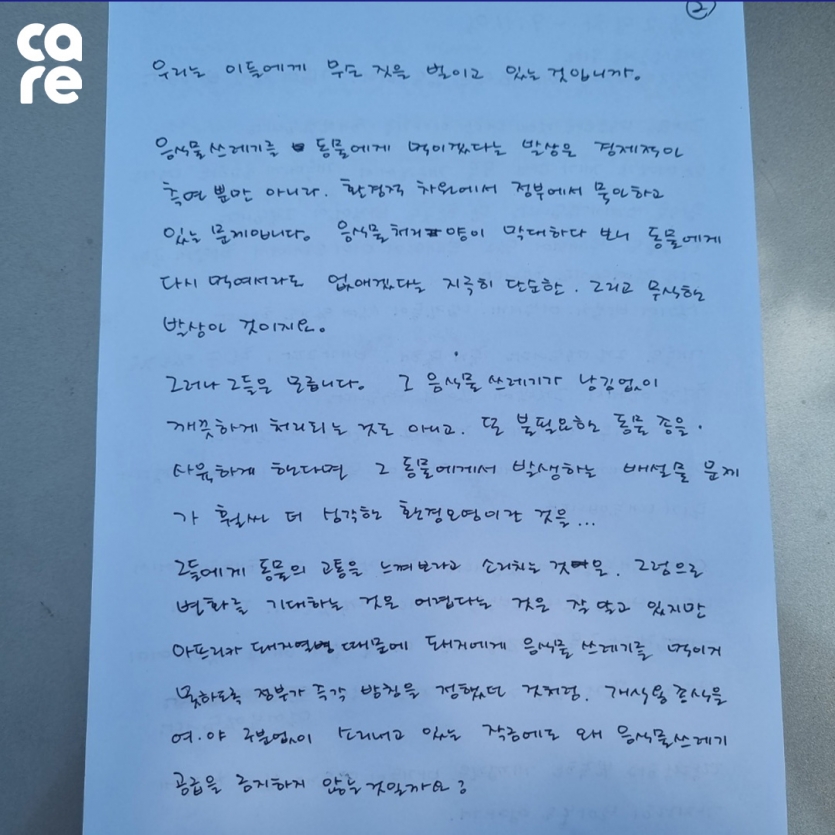 care
②
우리는 이들에게 무슨 짓을 벌이고 있는 것입니까.
음식물 쓰레기를 동물에게 먹이겠다는 발상은 경제적인
측면 뿐만 아니라. 환경적 차원에서 정부에서 묵인하고
있는 문제입니다. 음식물처리 양이 막대하다 보니 동물에게
다시 먹여서라도 없애겠다는 지극히 단순한. 그리고 무식한
발상인 것이지요.
그러나 그들은 모릅니다. 그 음식물 쓰레기가 남김없이
깨끗하게 처리되는 것도 아니고. 또 불필요한 동물 종을.
사육하게 한다면 그 동물에게서 발생하는 배설물 문제
가 훨씬 더 심각한 환경오염이란 것을...
그들에게 동물의 고통을 느껴보라고 소리치는 것만을. 그럼으로
변화를 기대하는 것은 어렵다는 것은 잘 알고 있지만
아프리카 돼지열병 때문에 돼지에게 음식물 쓰레기를 먹이지
못하도록 정부가 즉각 방침을 정했던 것처럼. 개식용 종식을
여.야 구분없이 소리내고 있는 작금에도 왜 음식물쓰레기
공급을 금지하지 않는것일까요?